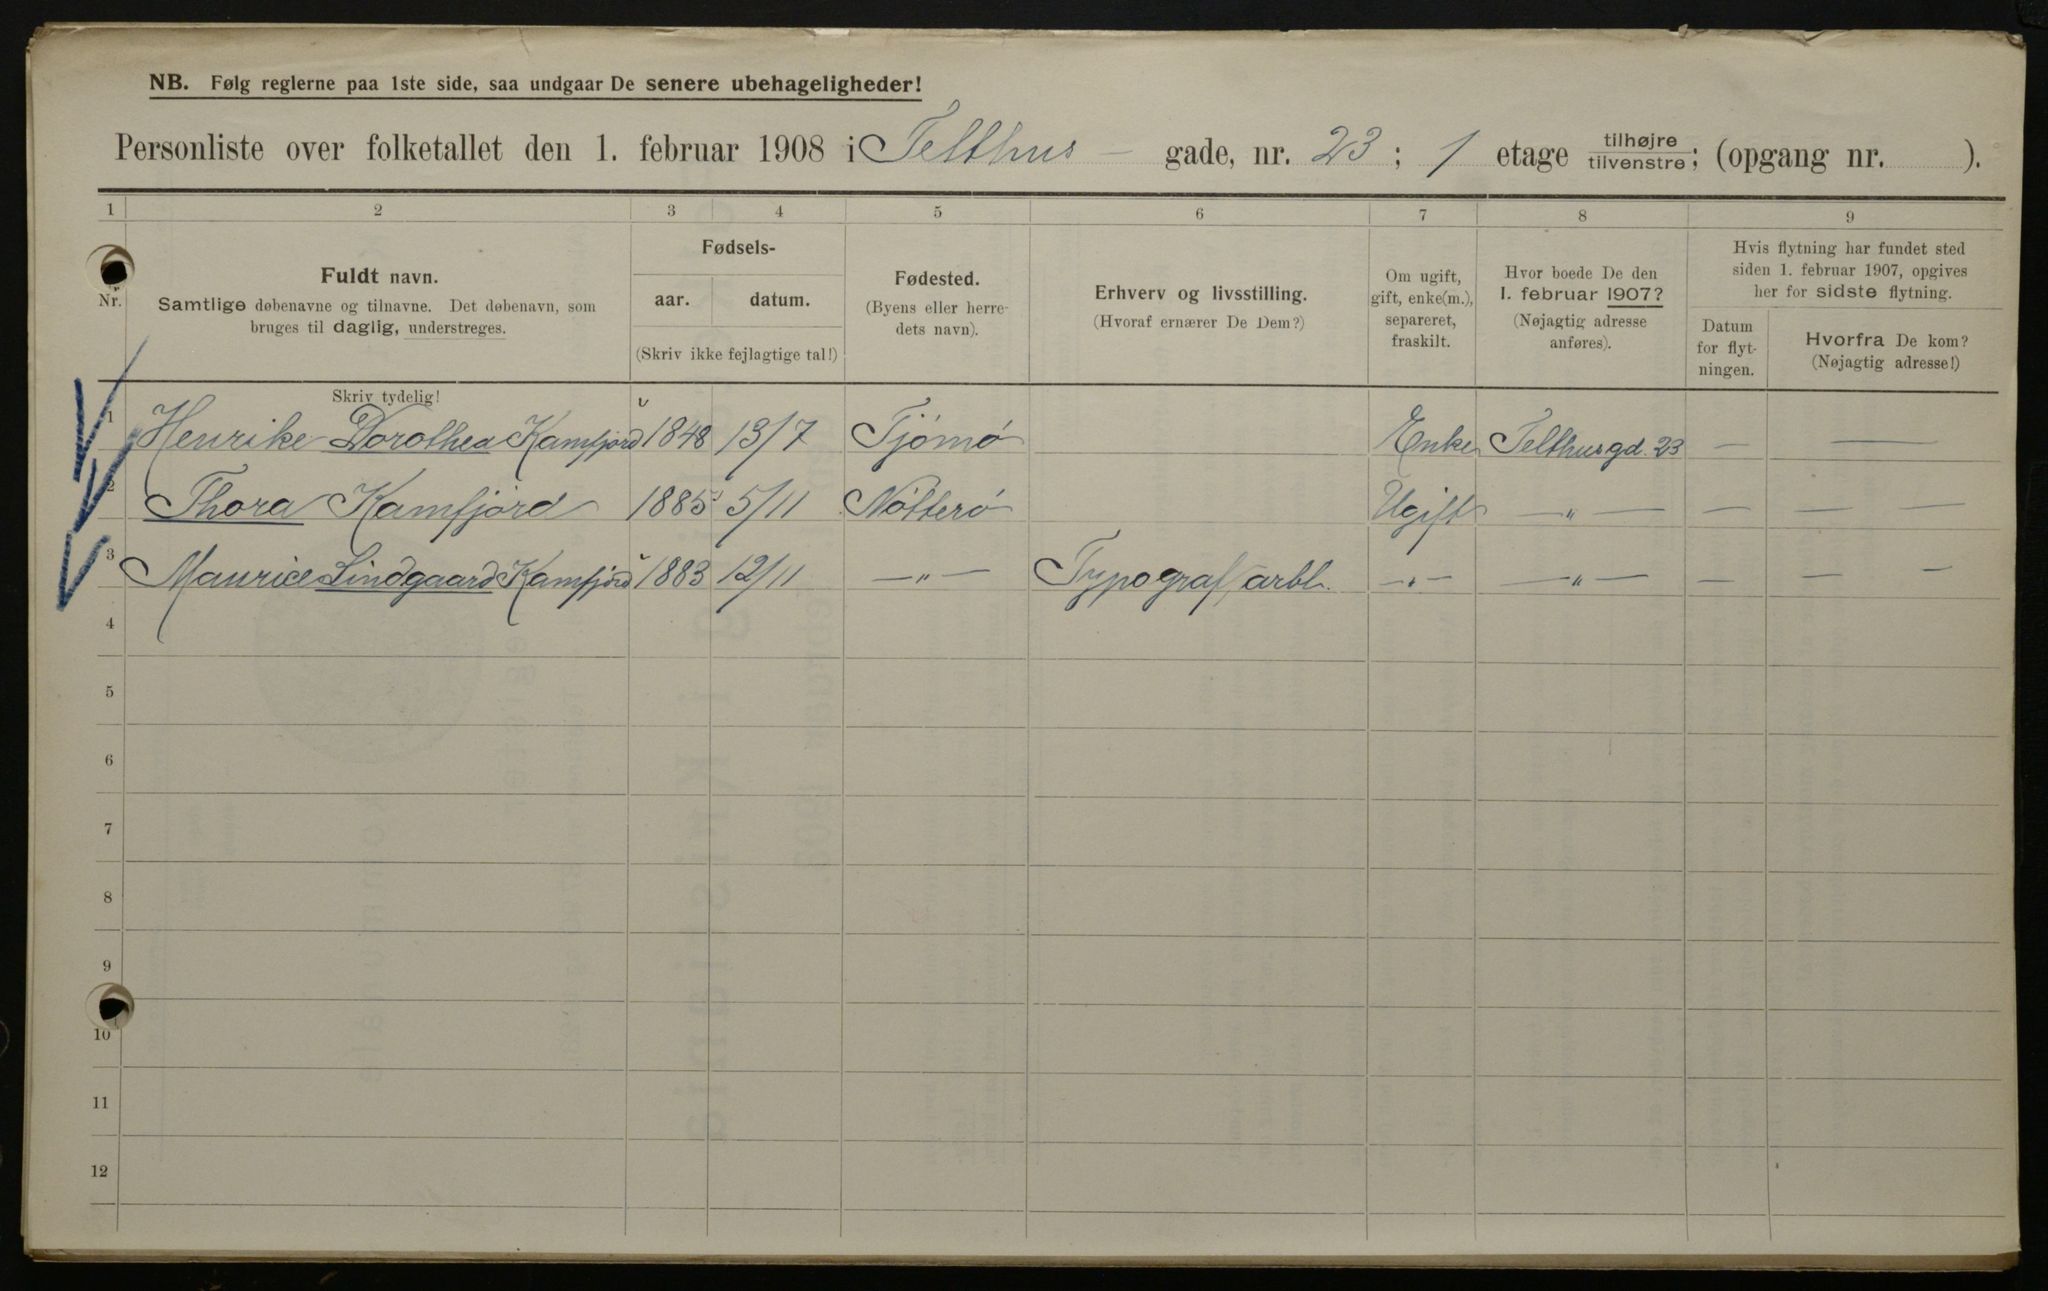 NB. Følg reglerne paa 1ste side, saa undgaar De senere ubehageligheder!
Personliste over folketallet den 1. februar 1908 i Telthus - gade, nr. 23 ; 1 etage tilhøjre tilvenstre; (opgang nr. ).
1 2 3 4 5 6 7 8 9
Nr.
Fuldt navn.
Samtlige døbenavne og tilnavne. Det døbenavn, som
bruges til daglig, understreges.
Fødsels-
aar. datum.
(Skriv ikke fejlagtige tal!)
Fødested.
(Byens eller herre-
dets navn).
Erhverv og livsstilling.
(Hvoraf ernærer De Dem?)
Om ugift,
gift, enke(m.),
separeret,
fraskilt.
Hvor boede De den
1. februar 1907?
(Nøjagtig adresse
anføres).
Hvis flytning har fundet sted
siden 1. februar 1907, opgives
her for sidste flytning.
Datum
for flyt-
ningen.
Hvorfra De kom?
(Nøjagtig adresse!)
Skriv tydelig!
1 Henrike Dorothea Kamfjord 1848 13/7 Tjómó Enke Telthusgd. 23 — —
2 Thora Kamfjord 1885 5/11 Nótteró Ugift —"— — — —
3 Maurice Lindgaard Kamfjord 1883 12/11 —"— Typograf, arbl. —"— —"— — — —
4
5
6
7
8
9
10
11
12